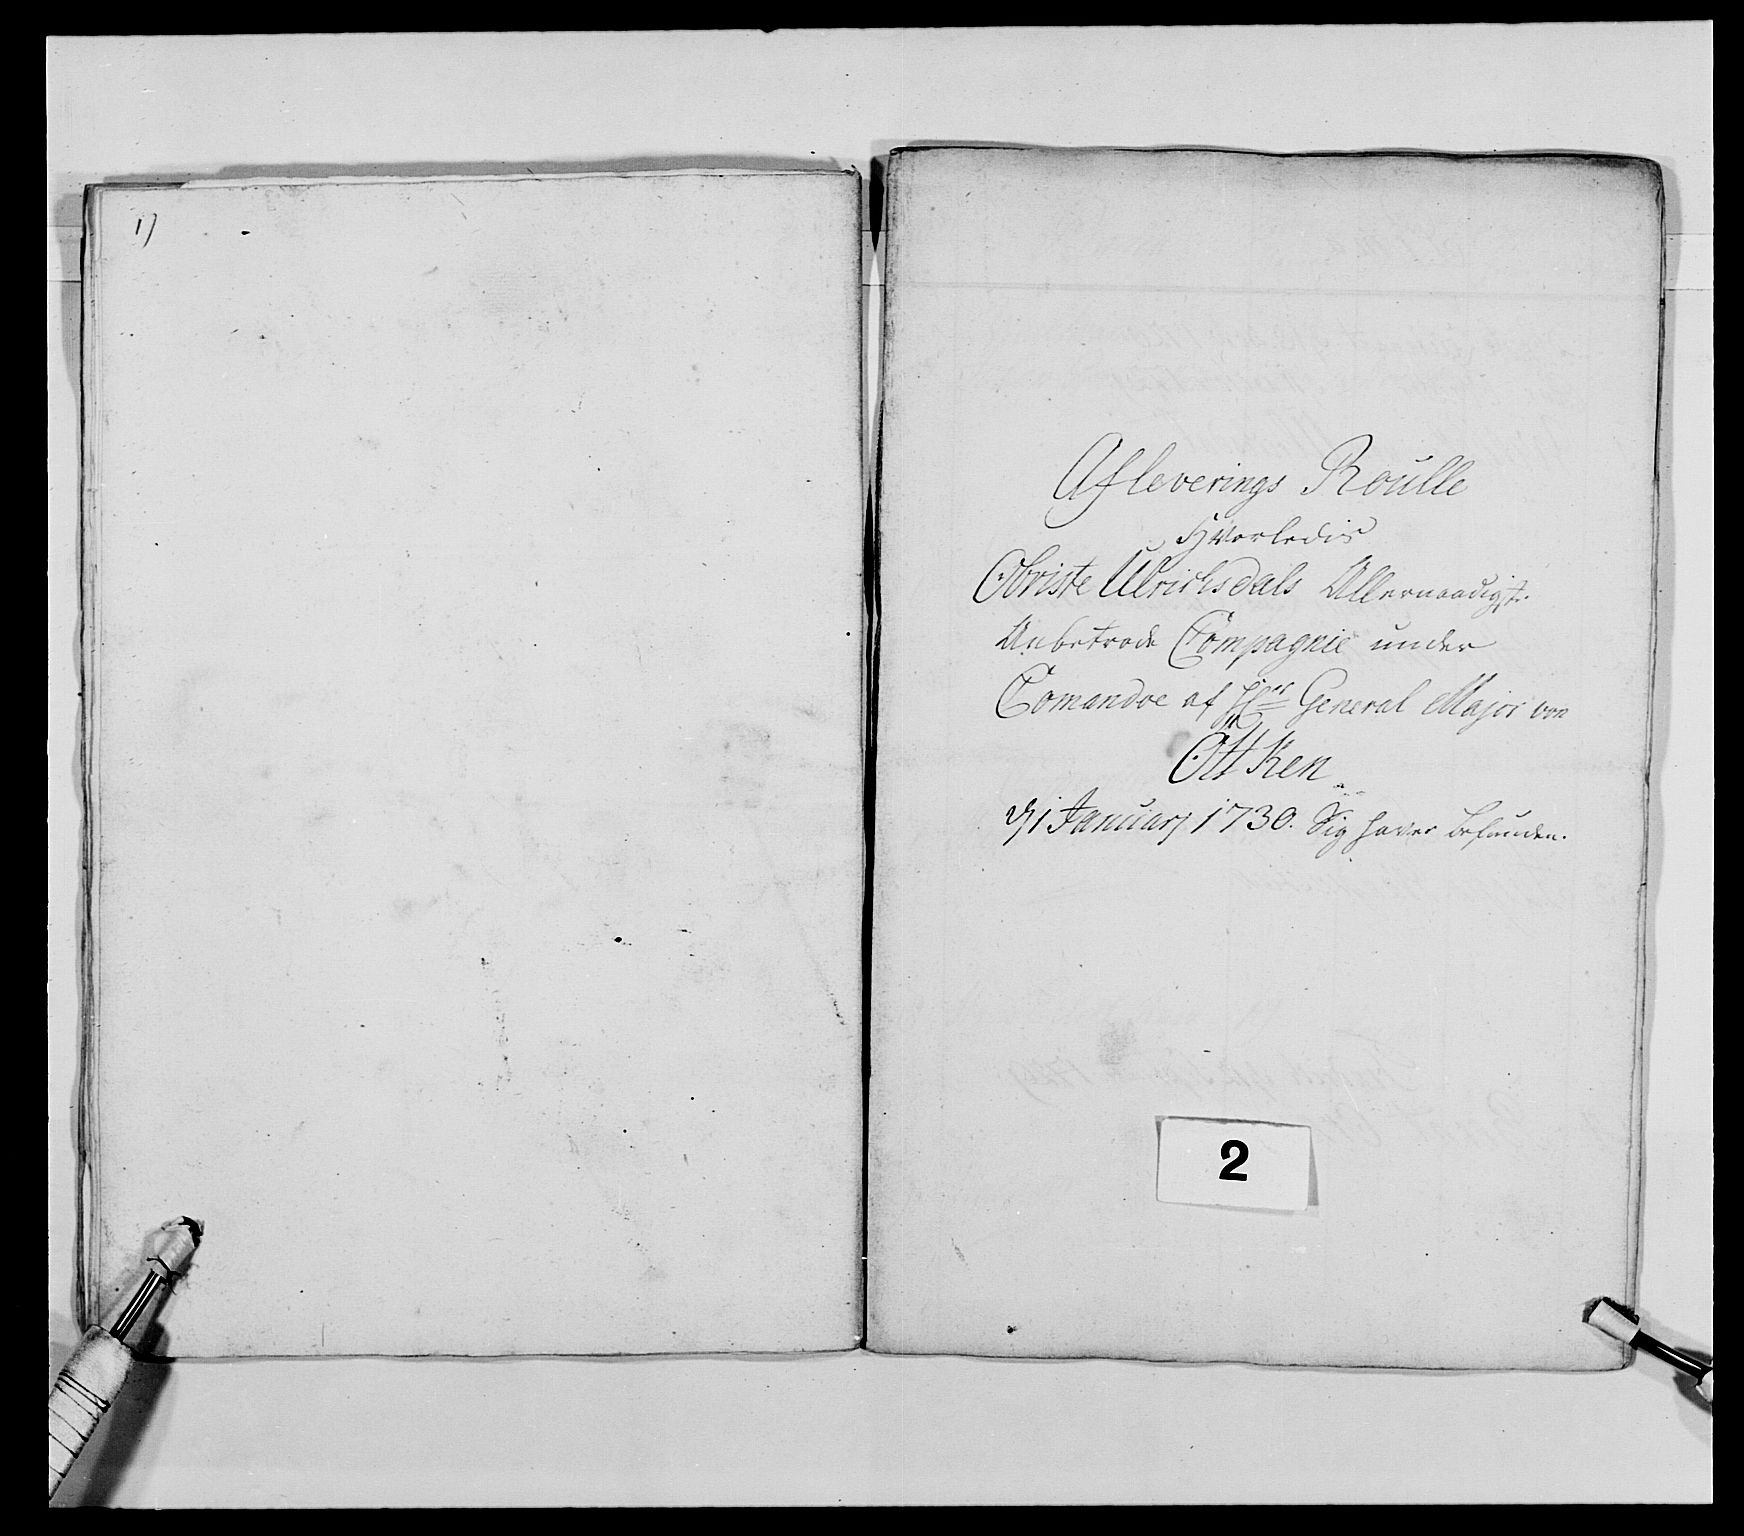 1)
Afleverings Roulle
Hvorledis
Obriste Ulrichsdals Allernaadigst
Anbetrode Compagnie under
Comandoe af Hr General Major von
Ötken
d 1 Januarj 1730. Sig haver befunden.
2